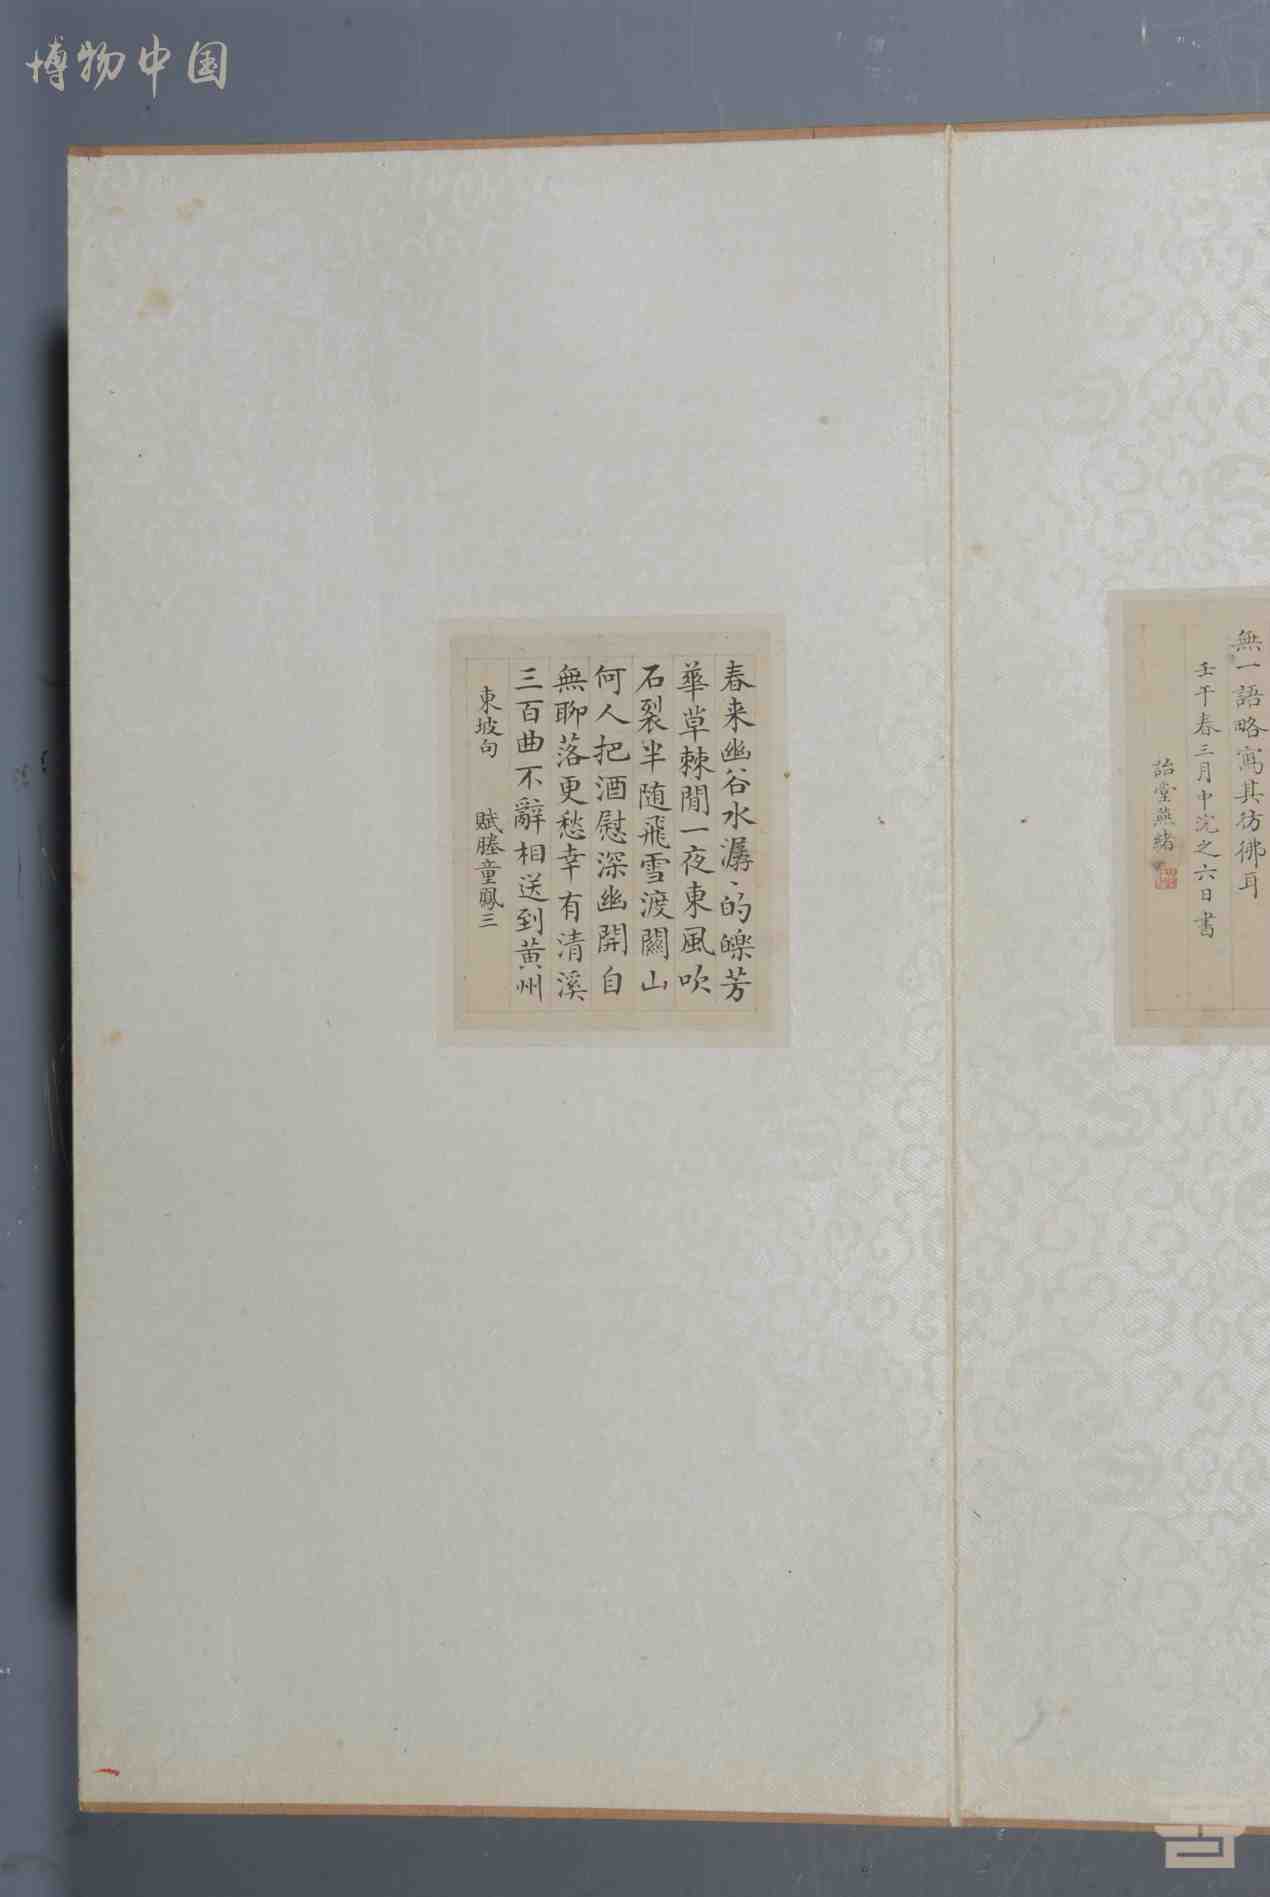 博物中国
無一語略寫其彷彿耳
壬午春三月中浣之六日書
詒堂燕緒
春来幽谷水潺、的皪芳
華草棘間一夜東風吹
石裂半随飛雪渡關山
何人把酒慰深幽開自
無聊落更愁幸有清溪
三百曲不辭相送到黄州
東坡句
賦媵童鳳三